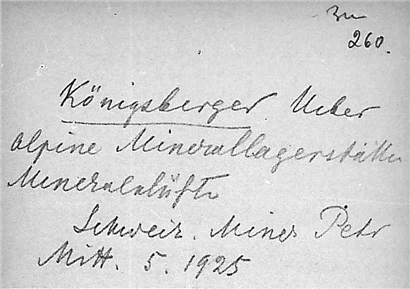 Zu
260.
Königsberger Ueber
alpine Minerallagerstätten
Mineralklüfte
Schweiz. Miner Petr
Mitt. 5. 1925